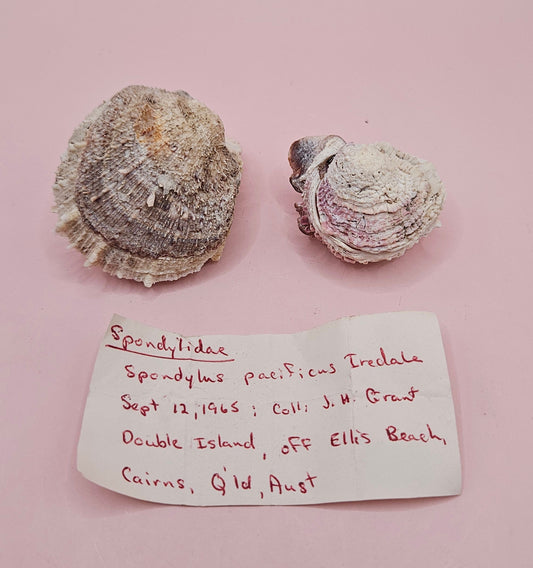 Spondylidae
Spondylus pacificus Iredale
Sept 12, 1965 ; Coll; J. H. Grant
Double Island, off Ellis Beach,
Cairns, Q'ld, Aust